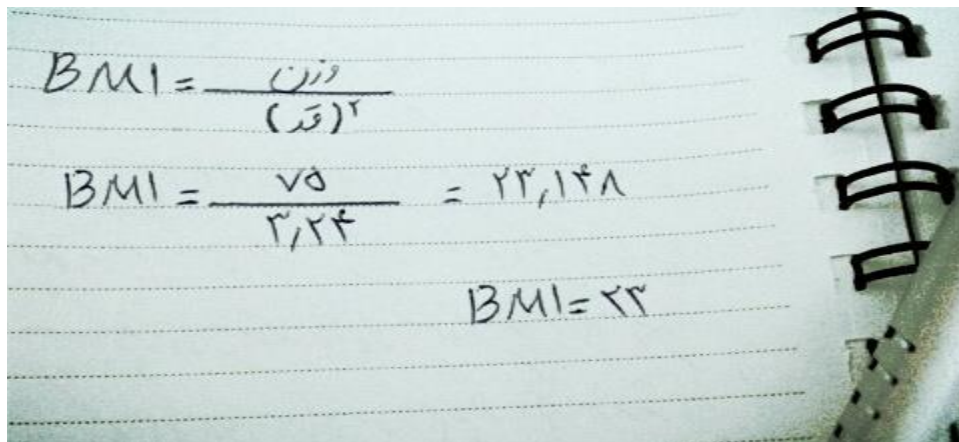 BMI = وزن / (قد)۲
BMI = ۷۵ / ۳,۲۴ = ۲۳,۱۴۸
BMI = ۲۳